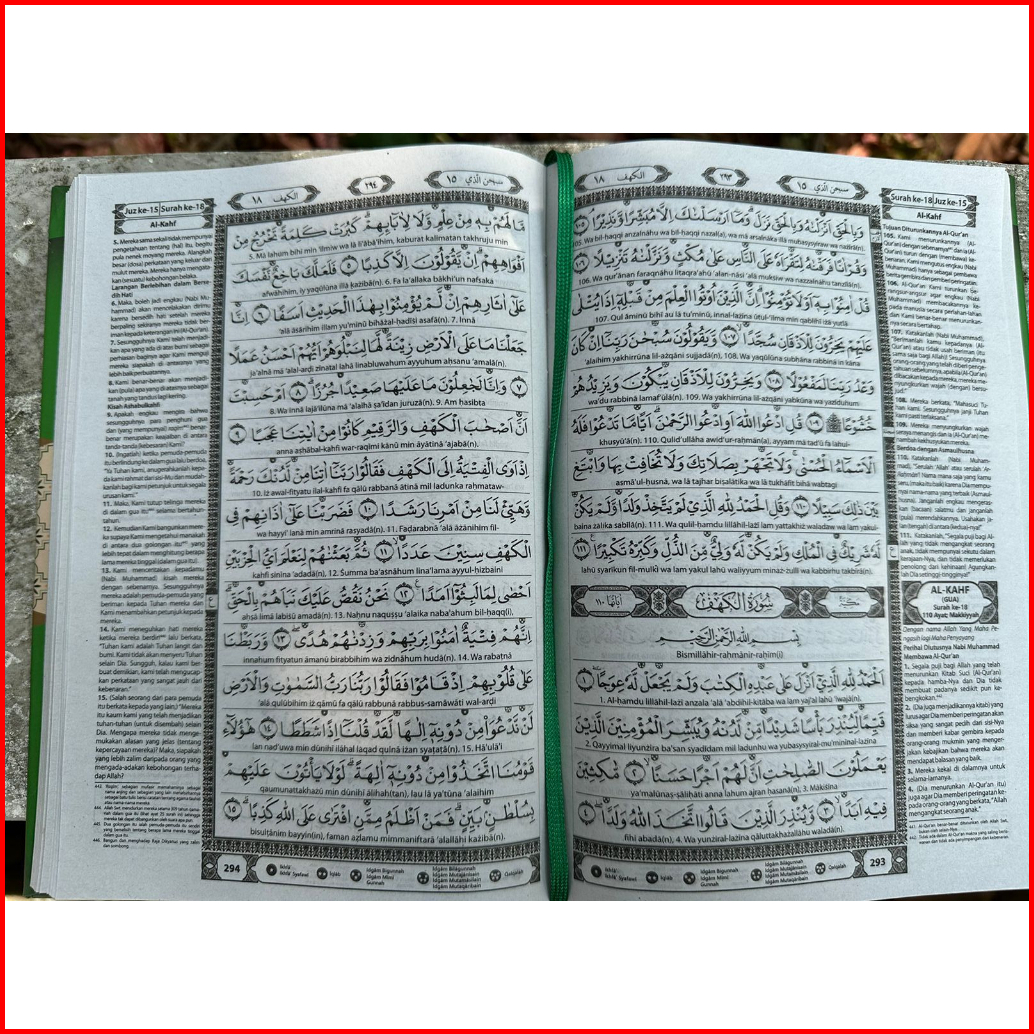 سبحن الّذي ١٥
٢٩٣
الكهف ١٨
وَبِالْحَقِّ اَنْزَلْنٰهُ وَبِالْحَقِّ نَزَلَۗ وَمَآ اَرْسَلْنٰكَ اِلَّا مُبَشِّرًا وَّنَذِيْرًاۘ ١٠٥
105. Wa bil-ḥaqqi anzalnāhu wa bil-ḥaqqi nazal(a), wa mā arsalnāka illā mubasysyiraw wa nażīrā(n).
وَقُرْاٰنًا فَرَقْنٰهُ لِتَقْرَاَهٗ عَلَى النَّاسِ عَلٰى مُكْثٍ وَّنَزَّلْنٰهُ تَنْزِيْلًا ١٠٦
106. Wa qur'ānan faraqnāhu litaqra'ahū 'alan-nāsi 'alā mukṡiw wa nazzalnāhu tanzīlā(n).
قُلْ اٰمِنُوْا بِهٖٓ اَوْ لَا تُؤْمِنُوْاۗ اِنَّ الَّذِيْنَ اُوْتُوا الْعِلْمَ مِنْ قَبْلِهٖٓ اِذَا يُتْلٰى
107. Qul āminū bihī au lā tu'minū, innal-lażīna ūtul-'ilma min qablihī iżā yutlā
عَلَيْهِمْ يَخِرُّوْنَ لِلْاَذْقَانِ سُجَّدًاۙ ١٠٧ وَّيَقُوْلُوْنَ سُبْحٰنَ رَبِّنَآ اِنْ كَانَ
'alaihim yakhirrūna lil-ażqāni sujjadā(n). 108. Wa yaqūlūna subḥāna rabbinā in kāna
وَعْدُ رَبِّنَا لَمَفْعُوْلًا ١٠٨ وَيَخِرُّوْنَ لِلْاَذْقَانِ يَبْكُوْنَ وَيَزِيْدُهُمْ
wa'du rabbinā lamaf'ūlā(n). 109. Wa yakhirrūna lil-ażqāni yabkūna wa yazīduhum
خُشُوْعًا ۩ ١٠٩ قُلِ ادْعُوا اللّٰهَ اَوِ ادْعُوا الرَّحْمٰنَۗ اَيًّا مَّا تَدْعُوْا فَلَهُ
khusyū'ā(n). 110. Qulid'ullāha awid'ur-raḥmān(a), ayyam mā tad'ū fa lahul-
الْاَسْمَاۤءُ الْحُسْنٰىۚ وَلَا تَجْهَرْ بِصَلَاتِكَ وَلَا تُخَافِتْ بِهَا وَابْتَغِ
asmā'ul-ḥusnā, wa lā tajhar biṣalātika wa lā tukhāfit bihā wabtagi
بَيْنَ ذٰلِكَ سَبِيْلًا ١١٠ وَقُلِ الْحَمْدُ لِلّٰهِ الَّذِيْ لَمْ يَتَّخِذْ وَلَدًا وَّلَمْ يَكُنْ
baina żālika sabīlā(n). 111. Wa qulil-ḥamdu lillāhil-lażī lam yattakhiż waladaw wa lam yakul-
لَّهٗ شَرِيْكٌ فِى الْمُلْكِ وَلَمْ يَكُنْ لَّهٗ وَلِيٌّ مِّنَ الذُّلِّ وَكَبِّرْهُ تَكْبِيْرًا ١١١
lahū syarīkun fil-mulki wa lam yakul lahū waliyyum minaż-żulli wa kabbirhu takbīrā(n).
مكيّة
سُوْرَةُ الْكَهْفِ
اٰيَاتُهَا ١١٠
بِسْمِ اللّٰهِ الرَّحْمٰنِ الرَّحِيْمِ
Bismillāhir-raḥmānir-raḥīm(i)
اَلْحَمْدُ لِلّٰهِ الَّذِيْٓ اَنْزَلَ عَلٰى عَبْدِهِ الْكِتٰبَ وَلَمْ يَجْعَلْ لَّهٗ عِوَجًاۜ ١
1. Al-ḥamdu lillāhil-lażī anzala 'alā 'abdihil-kitāba wa lam yaj'al lahū 'iwajā(n).
قَيِّمًا لِّيُنْذِرَ بَأْسًا شَدِيْدًا مِّنْ لَّدُنْهُ وَيُبَشِّرَ الْمُؤْمِنِيْنَ الَّذِيْنَ
2. Qayyimal liyunżira ba'san syadīdam mil ladunhu wa yubasysyiral-mu'minīnal-lażīna
يَعْمَلُوْنَ الصّٰلِحٰتِ اَنَّ لَهُمْ اَجْرًا حَسَنًاۙ ٢ مَّاكِثِيْنَ
ya'malūnaṣ-ṣāliḥāti anna lahum ajran ḥasanā(n). 3. Mākiṡīna
فِيْهِ اَبَدًاۙ ٣ وَّيُنْذِرَ الَّذِيْنَ قَالُوا اتَّخَذَ اللّٰهُ وَلَدًاۖ ٤
fīhi abadā(n). 4. Wa yunżiral-lażīna qāluttakhażallāhu waladā(n).
Ikhfā'
Ikhfā' Syafawi
Iqlāb
Idgām Bigunnah
Idgām Mimi
Gunnah
Idgām Bilāgunnah
Idgām Mutajānisain
Idgām Mutamāṡilain
Idgām Mutaqāribain
Qalqalah
293
Surah ke-18 Juz ke-15
Al-Kahf
Tujuan Diturunkannya Al-Qur'an
105. Kami menurunkannya (Al-
Qur'an) dengan sebenarnya dan (Al-
Qur'an) turun dengan (membawa) ke-
benaran. Kami mengutus engkau (Nabi
Muhammad) hanya sebagai pembawa
berita gembira dan pemberi peringatan.
106. Al-Qur'an Kami turunkan be-
rangsur-angsur agar engkau (Nabi
Muhammad) membacakannya ke-
pada manusia secara perlahan-lahan
dan Kami benar-benar menurunkan-
nya secara bertahap.
107. Katakanlah (Nabi Muhammad),
"Berimanlah kamu kepadanya (Al-
Qur'an) atau tidak usah beriman (itu
sama saja bagi Allah)! Sesungguhnya
orang-orang yang telah diberi penge-
tahuan sebelumnya, apabila (Al-Qur'an)
dibacakan kepada mereka, mereka me-
nyungkurkan wajah (dengan) bersu-
jud."
108. Mereka berkata, "Mahasuci Tu-
han kami. Sesungguhnya janji Tuhan
kami pasti terlaksana."
109. Mereka menyungkurkan wajah
seraya menangis dan ia (Al-Qur'an) me-
nambah kekhusyukan mereka.
Berdoa dengan Asmaulhusna
110. Katakanlah (Nabi Muham-
mad), "Serulah 'Allah' atau serulah 'Ar-
Rahmān'! Nama mana saja yang kamu
seru, (maka itu baik) karena Dia mempu-
nyai nama-nama yang terbaik (Asmaul-
husna). Janganlah engkau mengeras-
kan (bacaan) salatmu dan janganlah
(pula) merendahkannya. Usahakan ja-
lan (tengah) di antara (kedua)nya!"
111. Katakanlah, "Segala puji bagi Al-
lah yang tidak mengangkat seorang
anak, tidak mempunyai sekutu dalam
kerajaan-Nya, dan tidak memerlukan
penolong dari kehinaan! Agungkan-
lah Dia setinggi-tingginya!"
AL-KAHF
(GUA)
Surah ke-18
110 Ayat; Makkiyyah
Dengan nama Allah Yang Maha Pe-
ngasih lagi Maha Penyayang
Perihal Diutusnya Nabi Muhammad
Membawa Al-Qur'an
1. Segala puji bagi Allah yang telah
menurunkan Kitab Suci (Al-Qur'an)
kepada hamba-Nya dan Dia tidak
membuat padanya sedikit pun ke-
bengkokan.
2. (Dia menjadikannya kitab) yang
lurus agar Dia memberi peringatan akan
siksa yang sangat pedih dari sisi-Nya
dan memberi kabar gembira kepada
orang-orang mukmin yang menger-
jakan kebajikan bahwa mereka akan
mendapat balasan yang baik.
3. Mereka kekal di dalamnya untuk
selama-lamanya.
4. (Dia menurunkan Al-Qur'an itu)
juga agar Dia memberi peringatan ke-
pada orang-orang yang berkata, "Allah
mengangkat seorang anak."
سبحن الّذي ١٥
٢٩٤
الكهف ١٨
مَّا لَهُمْ بِهٖ مِنْ عِلْمٍ وَّلَا لِاٰبَاۤىِٕهِمْۗ كَبُرَتْ كَلِمَةً تَخْرُجُ مِنْ
5. Mā lahum bihī min 'ilmiw wa lā li'ābā'ihim, kaburat kalimatan takhruju min
اَفْوَاهِهِمْۗ اِنْ يَّقُوْلُوْنَ اِلَّا كَذِبًا ٥ فَلَعَلَّكَ بَاخِعٌ نَّفْسَكَ
afwāhihim, iy yaqūlūna illā każibā(n). 6. Fa la'allaka bākhi'un nafsaka
عَلٰٓى اٰثَارِهِمْ اِنْ لَّمْ يُؤْمِنُوْا بِهٰذَا الْحَدِيْثِ اَسَفًا ٦ اِنَّا
'alā āṡārihim illam yu'minū bihāżal-ḥadīṡi asafā(n). 7. Innā
جَعَلْنَا مَا عَلَى الْاَرْضِ زِيْنَةً لَّهَا لِنَبْلُوَهُمْ اَيُّهُمْ اَحْسَنُ عَمَلًا
ja'alnā mā 'alal-arḍi zīnatal lahā linabluwahum ayyuhum aḥsanu 'amalā(n).
٧ وَاِنَّا لَجَاعِلُوْنَ مَا عَلَيْهَا صَعِيْدًا جُرُزًاۗ ٨ اَمْ حَسِبْتَ
8. Wa innā lajā'ilūna mā 'alaihā ṣa'īdan juruzā(n). 9. Am ḥasibta
اَنَّ اَصْحٰبَ الْكَهْفِ وَالرَّقِيْمِ كَانُوْا مِنْ اٰيٰتِنَا عَجَبًا ٩
anna aṣḥābal-kahfi war-raqīmi kānū min āyātinā 'ajabā(n).
اِذْ اَوَى الْفِتْيَةُ اِلَى الْكَهْفِ فَقَالُوْا رَبَّنَآ اٰتِنَا مِنْ لَّدُنْكَ رَحْمَةً
10. Iż awal-fityatu ilal-kahfi fa qālū rabbanā ātinā mil ladunka raḥmataw-
وَّهَيِّئْ لَنَا مِنْ اَمْرِنَا رَشَدًا ١٠ فَضَرَبْنَا عَلٰٓى اٰذَانِهِمْ فِى
wa hayyi' lanā min amrinā rasyadā(n). 11. Faḍarabnā 'alā āżānihim fil-
الْكَهْفِ سِنِيْنَ عَدَدًاۙ ١١ ثُمَّ بَعَثْنٰهُمْ لِنَعْلَمَ اَيُّ الْحِزْبَيْنِ
kahfi sinīna 'adadā(n). 12. Ṡumma ba'aṡnāhum lina'lama ayyul-ḥizbaini
اَحْصٰى لِمَا لَبِثُوْٓا اَمَدًا ١٢ نَحْنُ نَقُصُّ عَلَيْكَ نَبَاَهُمْ بِالْحَقِّۗ
aḥṣā limā labiṡū amadā(n). 13. Naḥnu naquṣṣu 'alaika naba'ahum bil-ḥaqq(i),
اِنَّهُمْ فِتْيَةٌ اٰمَنُوْا بِرَبِّهِمْ وَزِدْنٰهُمْ هُدًىۖ ١٣ وَّرَبَطْنَا
innahum fityatun āmanū birabbihim wa zidnāhum hudā(n). 14. Wa rabaṭnā
عَلٰى قُلُوْبِهِمْ اِذْ قَامُوْا فَقَالُوْا رَبُّنَا رَبُّ السَّمٰوٰتِ وَالْاَرْضِ
'alā qulūbihim iż qāmū fa qālū rabbunā rabbus-samāwāti wal-arḍi
لَنْ نَّدْعُوَا۟ مِنْ دُوْنِهٖٓ اِلٰهًا لَّقَدْ قُلْنَآ اِذًا شَطَطًا ١٤ هٰٓؤُلَاۤءِ
lan nad'uwa min dūnihī ilāhal laqad qulnā iżan syaṭaṭā(n). 15. Hā'ulā'i
قَوْمُنَا اتَّخَذُوْا مِنْ دُوْنِهٖٓ اٰلِهَةًۗ لَوْلَا يَأْتُوْنَ عَلَيْهِمْ
qaumunattakhażū min dūnihī ālihah(tan), lau lā ya'tūna 'alaihim
بِسُلْطٰنٍۢ بَيِّنٍۗ فَمَنْ اَظْلَمُ مِمَّنِ افْتَرٰى عَلَى اللّٰهِ كَذِبًاۗ ١٥
bisulṭānim bayyin(in), faman aẓlamu mimmaniftarā 'alallāhi każibā(n).
294
Ikhfā'
Ikhfā' Syafawi
Iqlāb
Idgām Bigunnah
Idgām Mimi
Gunnah
Idgām Bilāgunnah
Idgām Mutajānisain
Idgām Mutamāṡilain
Idgām Mutaqāribain
Qalqalah
Juz ke-15 Surah ke-18
Al-Kahf
5. Mereka sama sekali tidak mempunyai
pengetahuan tentang (hal) itu, begitu
pula nenek moyang mereka. Alangkah
besar (dosa) perkataan yang keluar dari
mulut mereka. Mereka hanya mengata-
kan (sesuatu) kebohongan belaka.
Larangan Berlebihan dalam Berse-
dih Hati
6. Maka, boleh jadi engkau (Nabi Mu-
hammad) akan mencelakakan dirimu
karena bersedih hati setelah mereka
berpaling sekiranya mereka tidak ber-
iman kepada keterangan ini (Al-Qur'an).
7. Sesungguhnya Kami telah menjadi-
kan apa yang ada di atas bumi sebagai
perhiasan baginya agar Kami menguji
mereka siapakah di antaranya yang
lebih baik perbuatannya.
8. Kami benar-benar akan menjadi-
kan (pula) apa yang di atasnya sebagai
tanah yang tandus lagi kering.
Kisah Ashabulkahfi
9. Apakah engkau mengira bahwa
sesungguhnya para penghuni gua
dan (yang mempunyai) raqim benar-
benar merupakan keajaiban di antara
tanda-tanda (kebesaran) Kami?
10. (Ingatlah) ketika pemuda-pemuda
itu berlindung ke dalam gua lalu berdoa,
"Ya Tuhan kami, anugerahkanlah kepa-
da kami rahmat dari sisi-Mu dan mudah-
kanlah bagi kami petunjuk untuk segala
urusan kami."
11. Maka, Kami tutup telinga mereka
di dalam gua itu selama bertahun-
tahun.
12. Kemudian Kami bangunkan mere-
ka supaya Kami mengetahui manakah
di antara dua golongan itu yang
lebih tepat dalam menghitung berapa
lama mereka tinggal (dalam gua itu).
13. Kami menceritakan kepadamu
(Nabi Muhammad) kisah mereka
dengan sebenarnya. Sesungguhnya
mereka adalah pemuda-pemuda yang
beriman kepada Tuhan mereka dan
Kami menambahkan petunjuk kepada
mereka.
14. Kami meneguhkan hati mereka
ketika mereka berdiri lalu berkata,
"Tuhan kami adalah Tuhan langit dan
bumi. Kami tidak akan menyeru Tuhan
selain Dia. Sungguh, kalau kami ber-
buat demikian, kami telah mengucap-
kan perkataan yang sangat jauh dari
kebenaran."
15. (Salah seorang dari para pemuda
itu berkata kepada yang lain,) "Mereka
itu kaum kami yang telah menjadikan
tuhan-tuhan (untuk disembah) selain
Dia. Mengapa mereka tidak menge-
mukakan alasan yang jelas (tentang
kepercayaan mereka)? Maka, siapakah
yang lebih zalim daripada orang yang
mengada-adakan kebohongan terha-
dap Allah?